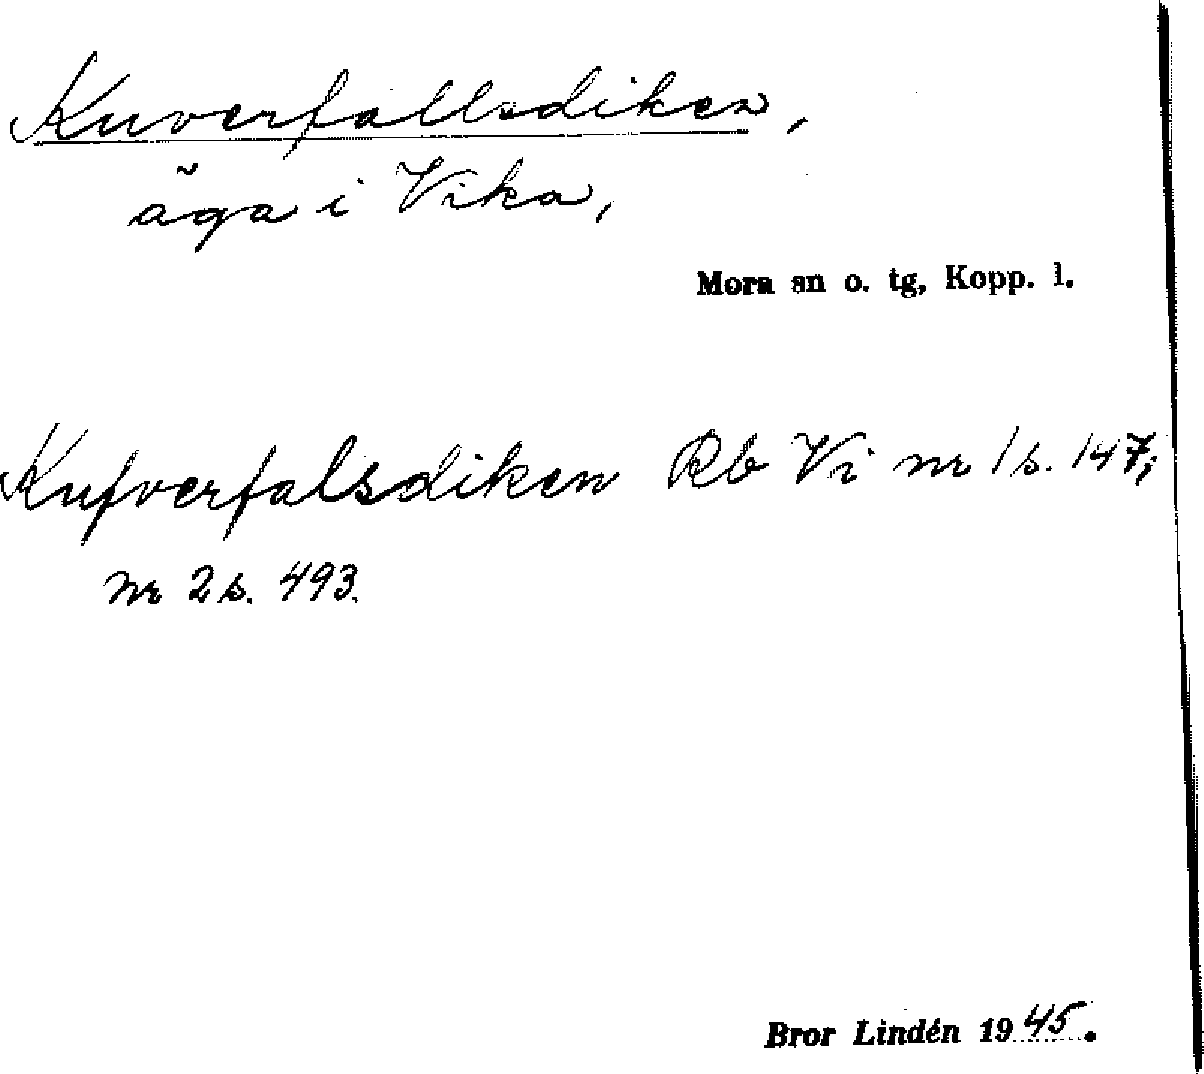 Kuverfallsdiken,
äga i Vika,
Mora sn o. tg, Kopp. l.
Kufverfalsdiken Rb Vi nr 1 s. 147;
nr 2 s. 493.
Bror Lindén 1945.